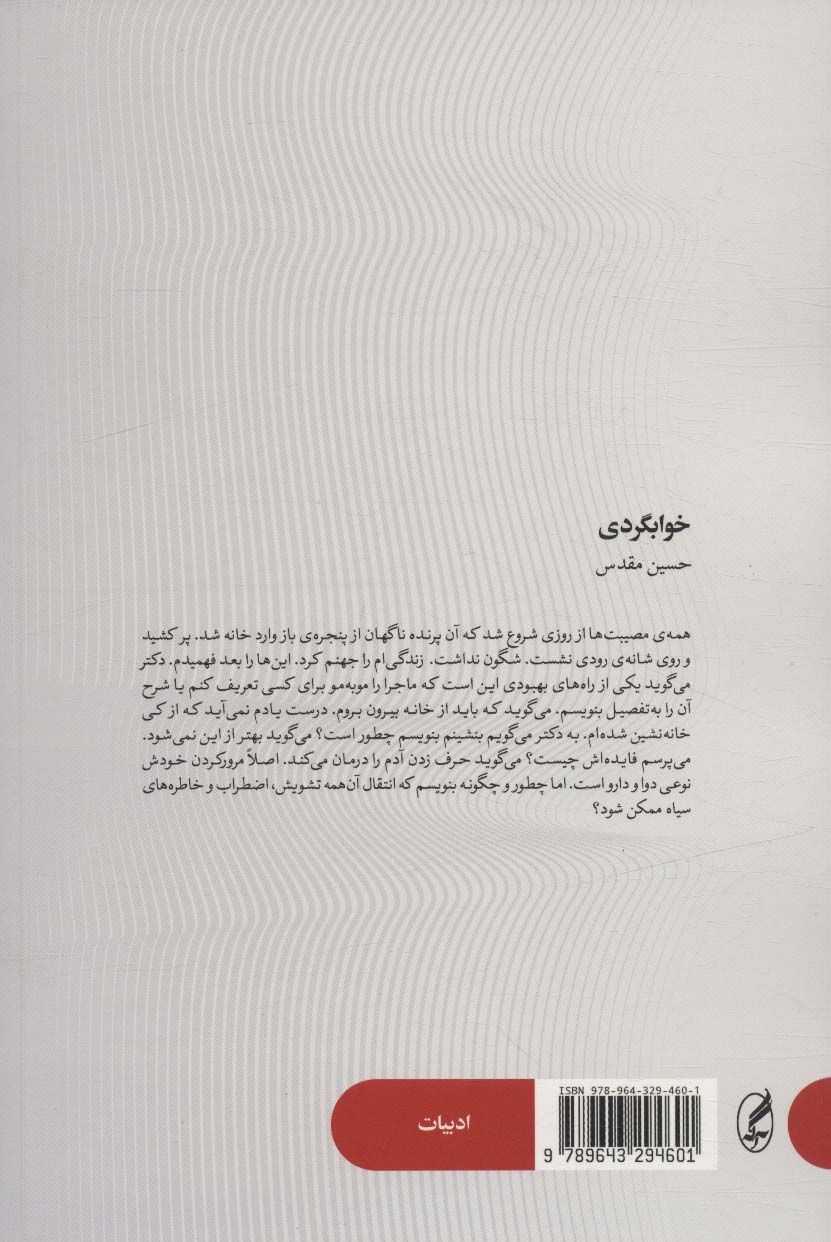 خوابگردی
حسین مقدس
همه‌ی مصیبت‌ها از روزی شروع شد که آن پرنده ناگهان از پنجره‌ی باز وارد خانه شد. پر کشید
و روی شانه‌ی رودی نشست. شگون نداشت. زندگی‌ام را جهنم کرد. این‌ها را بعد فهمیدم. دکتر
می‌گوید یکی از راه‌های بهبودی این است که ماجرا را موبه‌مو برای کسی تعریف کنم یا شرح
آن را به‌تفصیل بنویسم. می‌گوید که باید از خانه بیرون بروم. درست یادم نمی‌آید که از کی
خانه‌نشین شده‌ام. به دکتر می‌گویم بنشینم بنویسم چطور است؟ می‌گوید بهتر از این نمی‌شود.
می‌پرسم فایده‌اش چیست؟ می‌گوید حرف زدن آدم را درمان می‌کند. اصلاً مرورکردن خودش
نوعی دوا و دارو است. اما چطور و چگونه بنویسم که انتقال آن‌همه تشویش، اضطراب و خاطره‌های
سیاه ممکن شود؟
ISBN 978-964-329-460-1
ادبیات
آگه
9 789643 294601